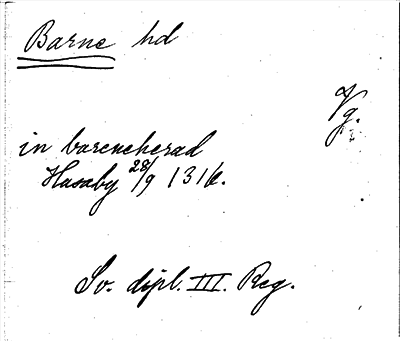 Barne hd
Vg.
in bareneherad
Husaby 28/9 1316.
Sv. dipl. III. Reg.